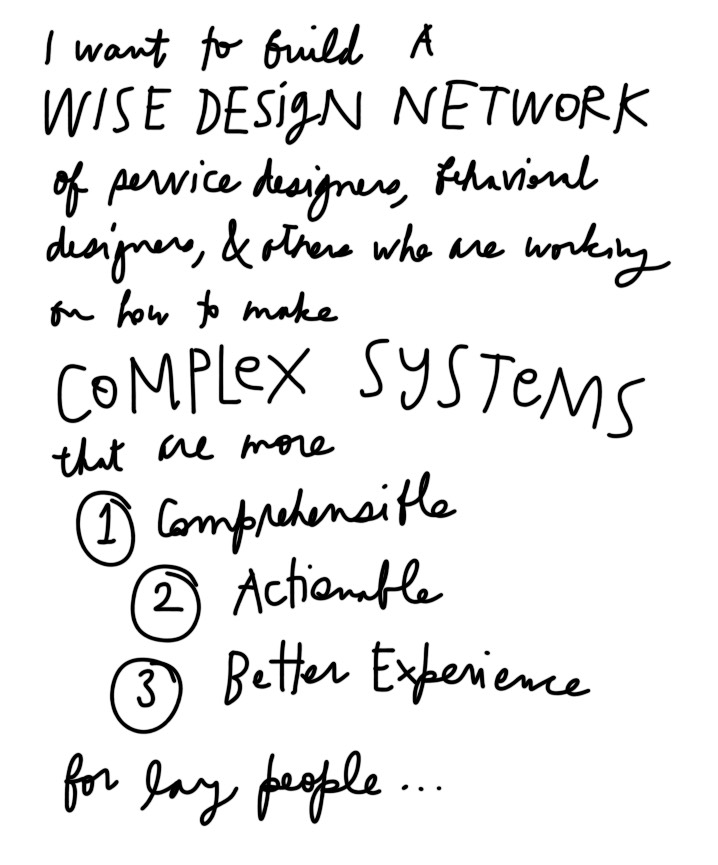 I want to build A
WISE DESIGN NETWORK
of service designers, behavioral
designers, & others who are working
on how to make
COMPLEX SYSTEMS
that are more
1 Comprehensible
2 Actionable
3 Better Experience
for lay people...